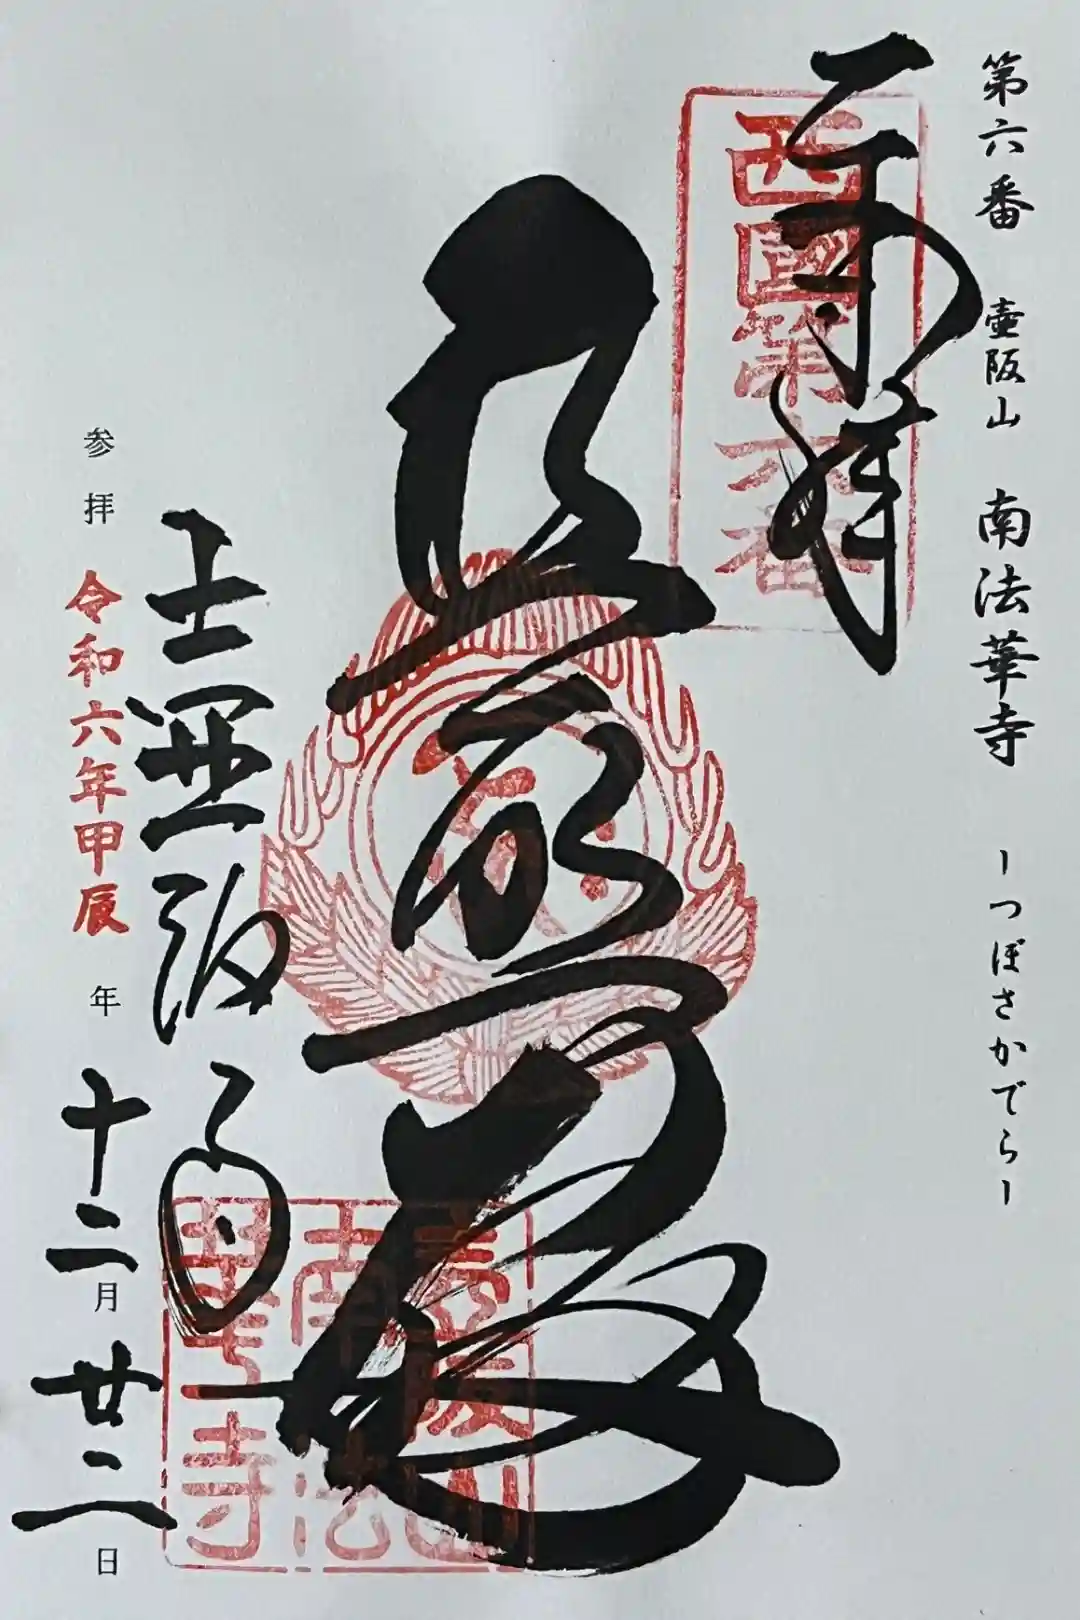 第六番 壺阪山 南法華寺 ーつぼさかでらー
奉拝
西國第六番
普照殿
壺阪寺
壺阪山
南法
華寺
参拝 令和六年甲辰 年 十二月 廿二日